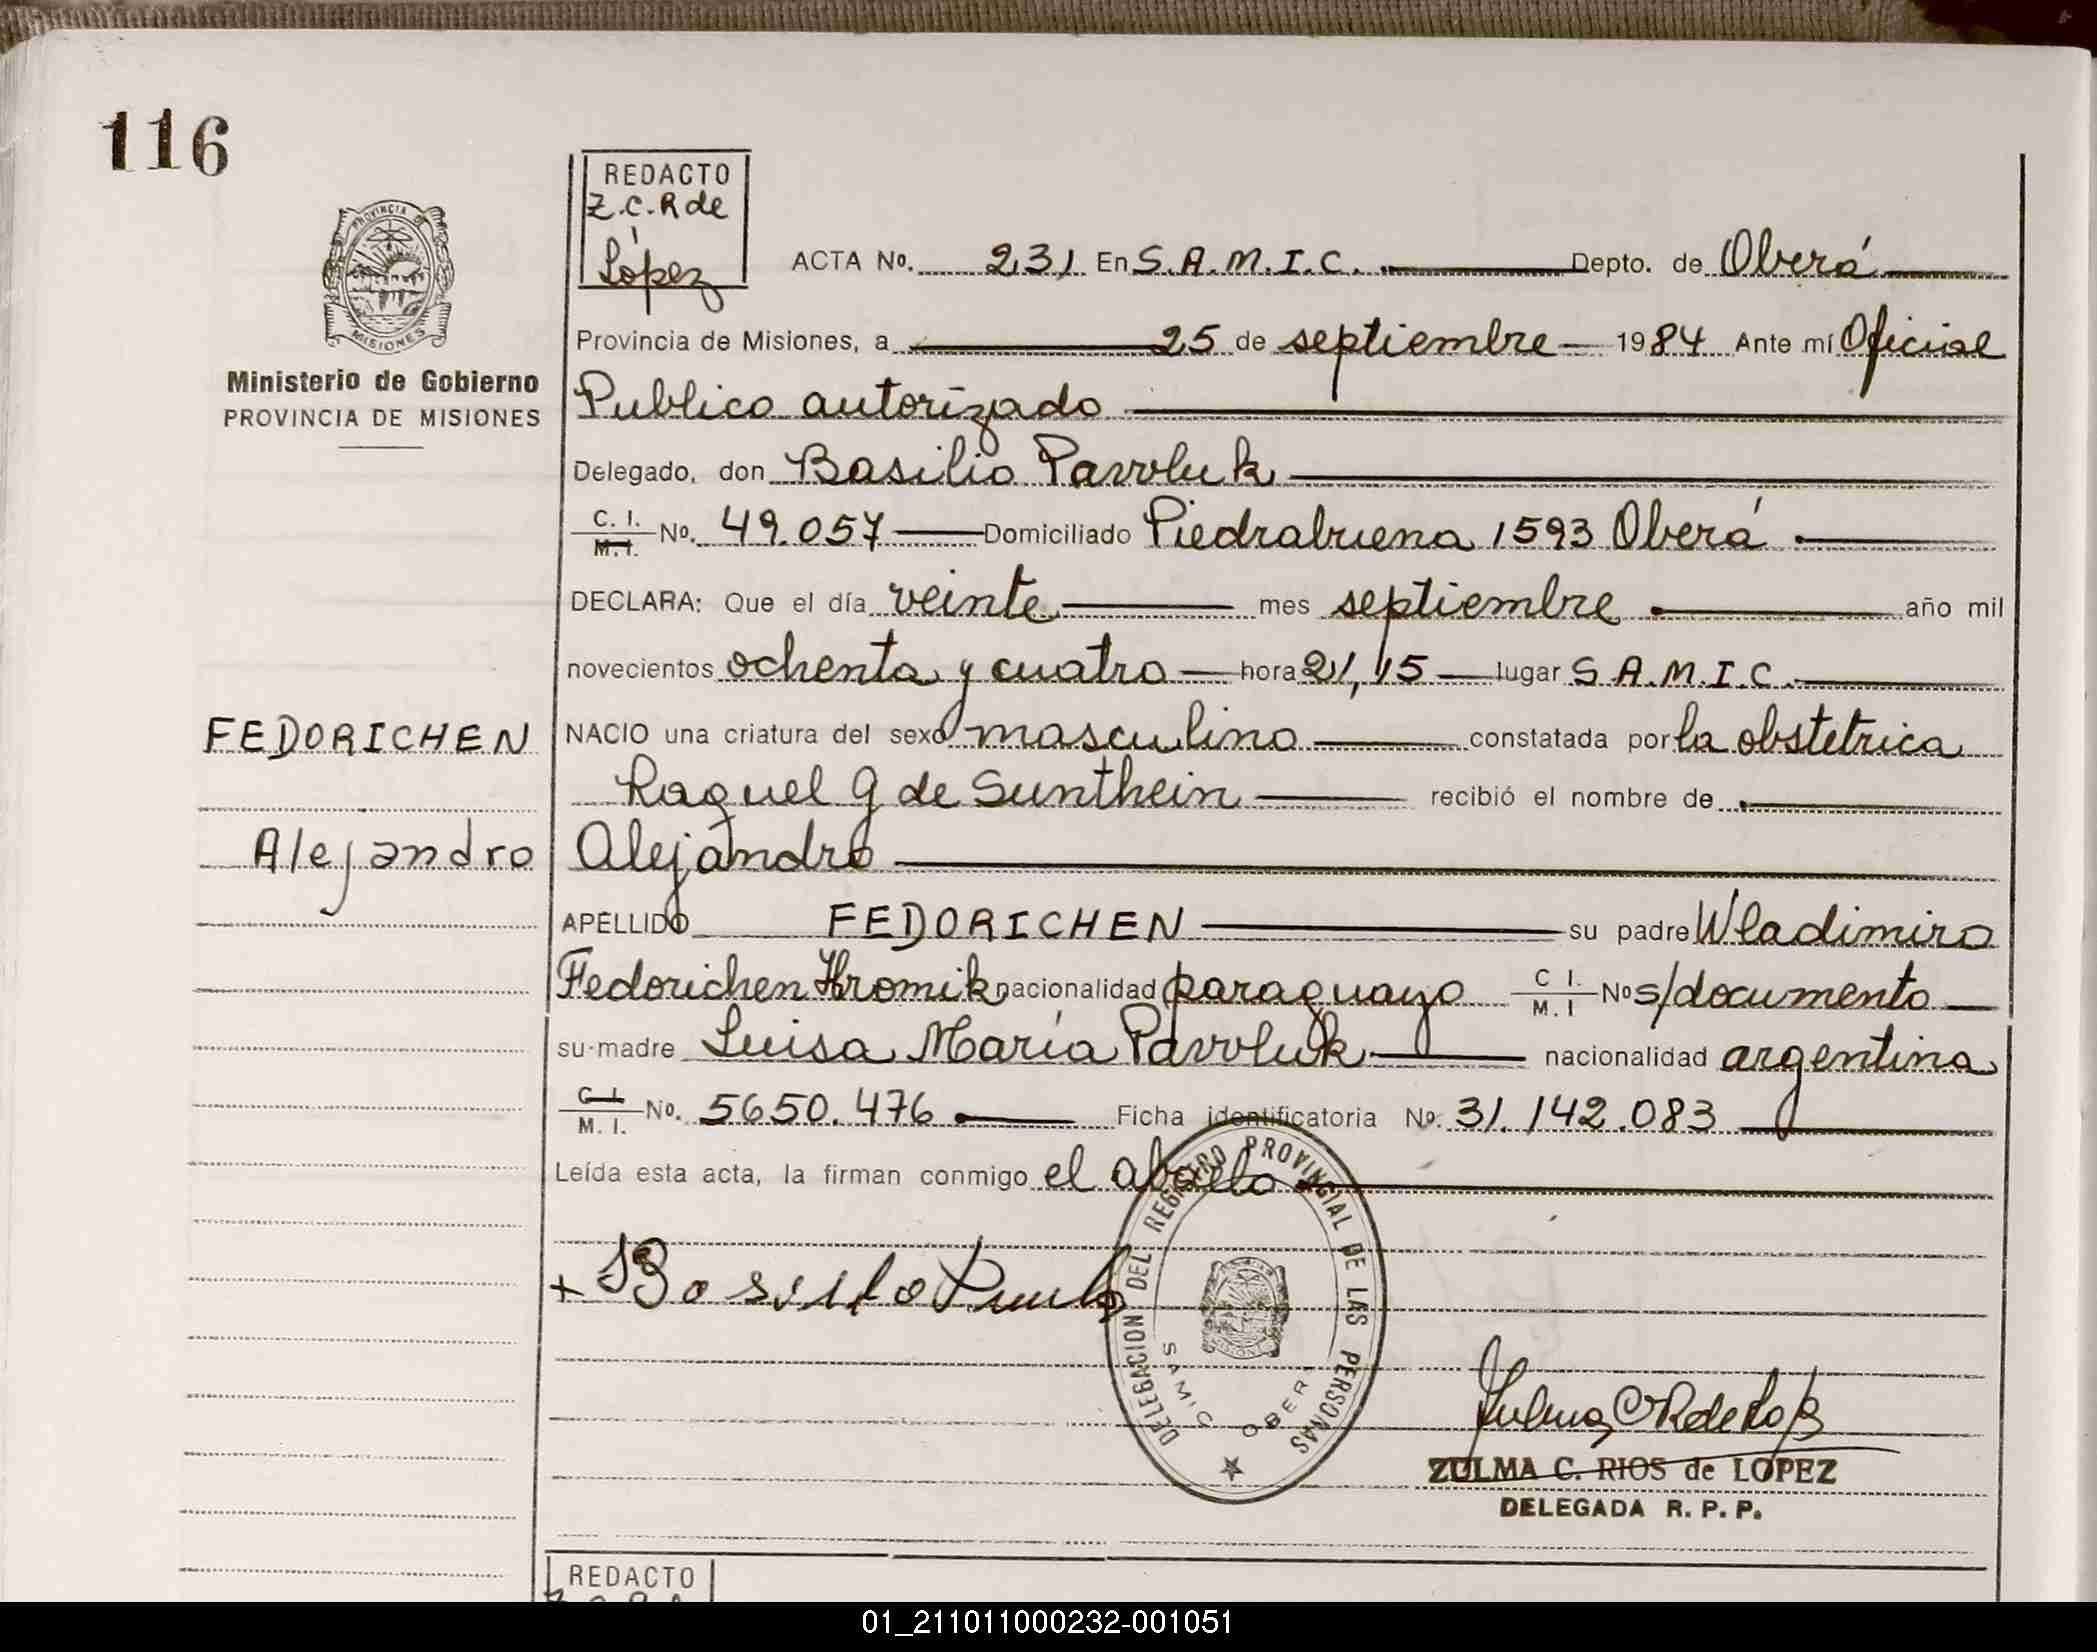 116
REDACTO
Z.C.R de
López
PROVINCIA DE
MISIONES
Ministerio de Gobierno
PROVINCIA DE MISIONES
ACTA No. 231 En S.A.M.I.C. Depto. de Oberá
Provincia de Misiones, a 25 de septiembre 1984 Ante mí Oficial
Publico autorizado
Delegado, don Basilio Pawluk
C. I. M. I. No. 49.057 Domiciliado Piedrabuena 1593 Oberá
DECLARA: Que el día veinte mes septiembre año mil
novecientos ochenta y cuatro hora 21,15 lugar S.A.M.I.C.
FEDORICHEN NACIO una criatura del sexo masculino constatada por la obstetrica
Raquel G de Sunthein recibió el nombre de
Alejandro Alejandro
APELLIDO FEDORICHEN su padre Wladimiro
Fedorichen Hromik nacionalidad paraguayo C I. M. I No s/documento
su madre Luisa María Pawluk nacionalidad argentina
C. I. M. I. No. 5650.476 Ficha identificatoria No. 31.142.083
Leída esta acta, la firman conmigo el abuelo
DELEGACION DEL REGISTRO PROVINCIAL DE LAS PERSONAS
SAMIC OBERA
MISIONES
+ Bosilo
Zulma C R de
ZULMA C. RIOS de LOPEZ
DELEGADA R. P. P.
REDACTO
01_211011000232-001051